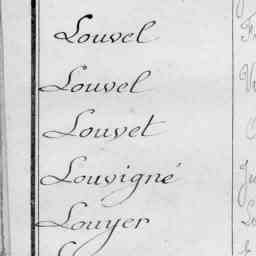 Louvel
Louvel
Louvet
Louvigné
Louyer